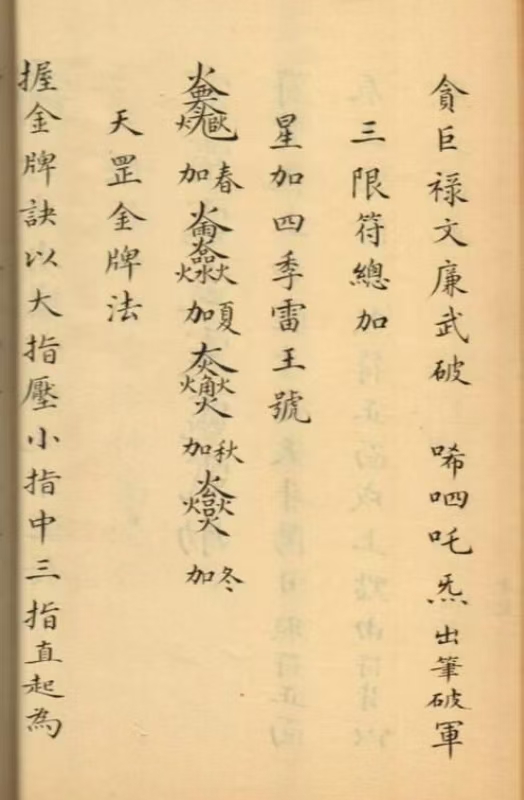 貪巨祿文廉武破 唏呬吒炁出筆破軍
三限符總加
星加四季雷王號
春加 夏加 秋加 冬加
天罡金牌法
握金牌訣以大指壓小指中三指直起為